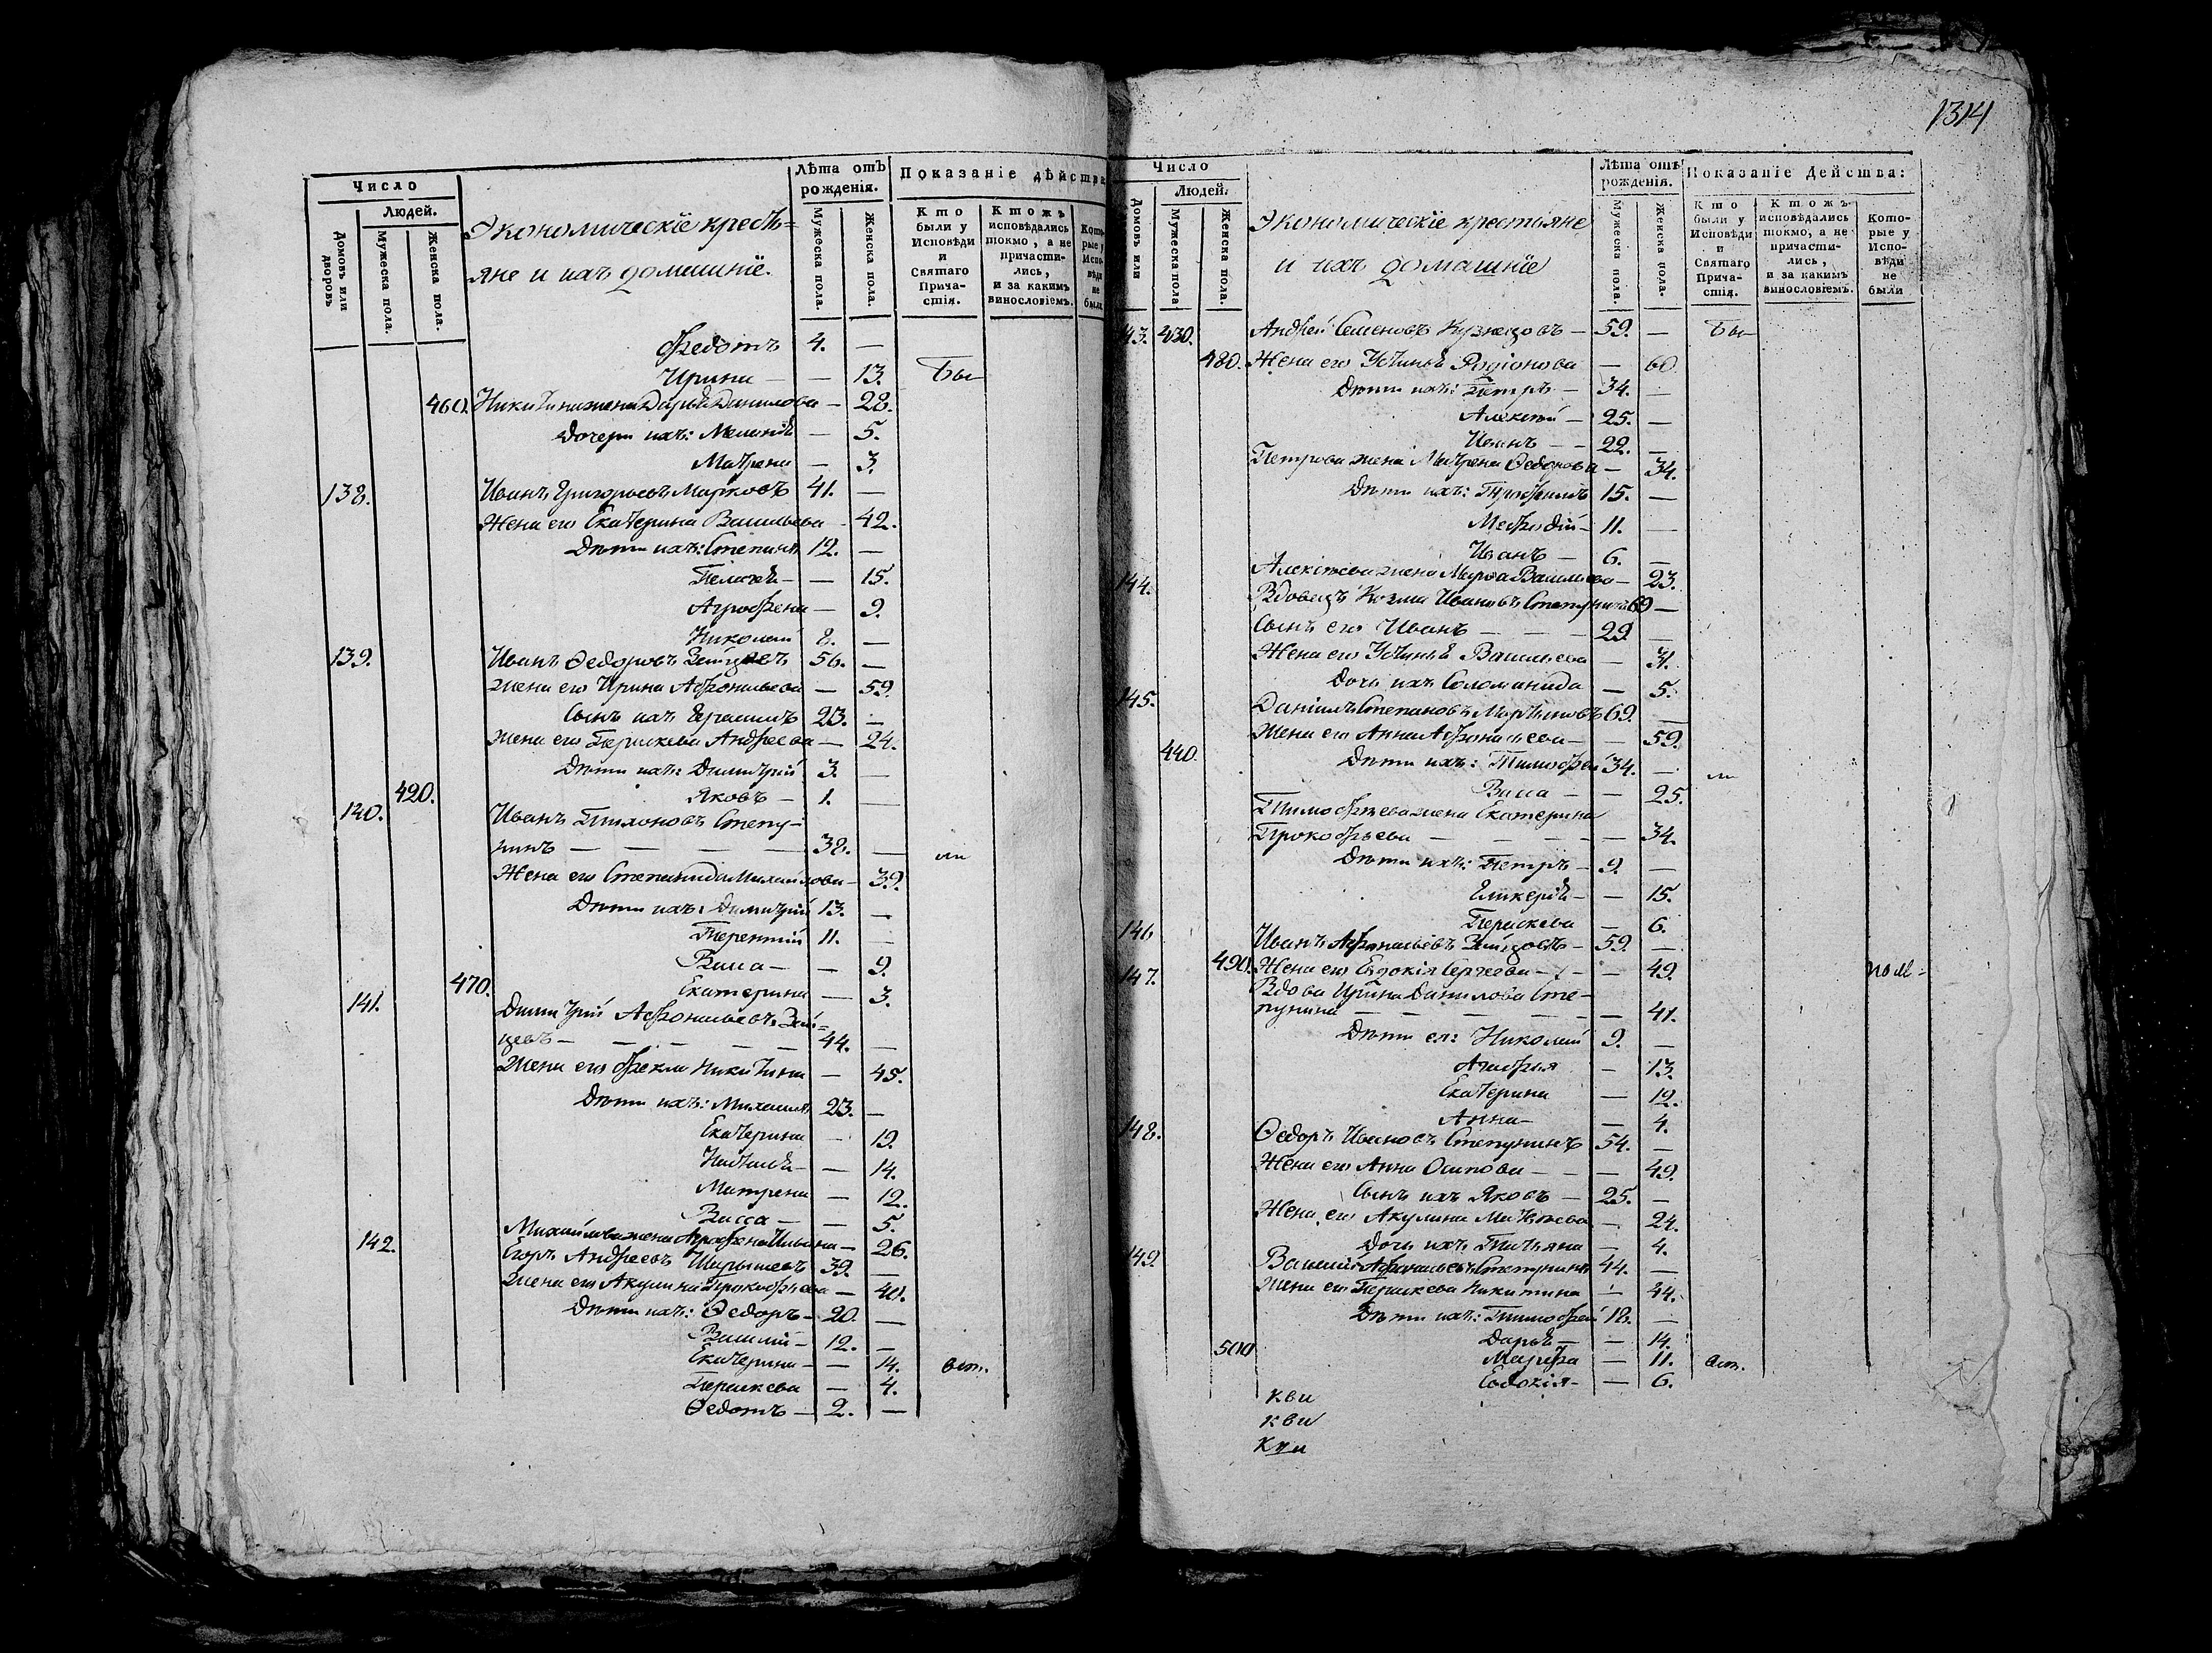 Число
Людей.
Домовъ или дворовъ
Мужеска пола.
Женска пола.
Экономическіе кресть=
яне и ихъ домашніе.
Лѣта отъ рожденія.
Мужеска пола.
Женска пола.
Показаніе дѣйства
Кто были у Исповѣди и Святаго Прича-стія.
Ктожъ исповѣдались токмо, а не причасти-лись, и за какимъ винословіемъ.
Кото-рые у Испо-вѣди не были
Федотъ 4. —
Ирина — — 13. бы
460. Никитина жена Дарья Данилова — 28.
Дочери ихъ: Меланья — 5.
Матрена — 3.
138. Иванъ Григорьевъ Марковъ 41. —
Жена его Екатерина Васильева — 42.
Дѣти ихъ: Степанъ 12. —
Пелагея — — 15.
Агрофена — 9.
Николай 8. —
139. Иванъ Ѳедоровъ Зайцевъ 56. —
Жена его Ирина Афонасьева — 59.
Сынъ ихъ Герасимъ 23. —
Жена его Параскева Андреева — 24.
Дѣти ихъ: Димитрій 3. —
420. Яковъ — 1. —
140. Иванъ Тихоновъ Степу-
нинъ — — — — 38. — ли
Жена его Степанида Михайлова — 39.
Дѣти ихъ: Димитрій 13. —
Терентій 11. —
Васса — — 9.
470. Екатерина — 3.
141. Димитрій Афонасьевъ Зай=
цевъ — — — — — 44. —
Жена его Фекла Никитина — 45.
Дѣти ихъ: Михаилъ 23. —
Екатерина — 19.
Наталья — — 14.
Матрена — 12.
Васса — — 5.
Михайлова жена Агрофена Ильина — 26.
142. Егоръ Андреевъ 39. —
Жена его Акулина Прокофьева — 40.
Дѣти ихъ: Ѳедоръ — 20. —
Василій — 12. —
Екатерина — — 14. вст.
Параскева — 4.
Ѳедотъ — 2. —
1314
Число
Людей.
Домовъ или
Мужеска пола
Женска пола.
Экономическіе крестьяне
и ихъ домашніе
Лѣта отъ рожденія.
Мужеска пола.
Женска пола.
Показаніе Действа:
Кто были у Исповѣди и Святаго Прича-стія.
Ктожъ исповѣдались токмо, а не причасти-лись, и за какимъ винословіемъ.
Кото-рые у Испо-вѣди не были
143. 430. Андрей Семеновъ Кузнецовъ — 59. — бы
480. Жена его Устинья Родіонова — 60
Дѣти ихъ: Петръ — 34. —
Алексѣй — 25. —
Иванъ — — 22. —
Петрова жена Матрена Ѳедорова — 34.
Дѣти ихъ: Трофимъ 15. —
Мефодій — 11. —
Иванъ — 6. —
Алексѣева жена Марѳа Васильева — 23.
144. Вдовецъ Козма Ивановъ Степунинъ 69 —
Сынъ его Иванъ — — — 29. —
Жена его Устинья Васильева — 31.
Дочь ихъ Соломанида — 5.
145. Даніилъ Степановъ Мартыновъ 69. —
Жена его Анна Афонасьева — — 59.
440. Дѣти ихъ: Тимофей 34. — ли
Васса — — 25.
Тимофѣева жена Екатерина
Прокофьева — — — — 34.
Дѣти ихъ: Петръ — 9. —
Гликерья — — 15.
Параскева — 6.
146 Иванъ Афонасьевъ Зайцовъ — 59. —
490. Жена его Евдокія Сергѣева — — — 49.
147. Вдова Ирина Данилова Сте-
пунина — — — — — — 41.
Дѣти ея: Николай 9. —
Агафья — 13.
Екатерина — 12.
Анна — — 4.
148. Ѳедоръ Ивановъ Степунинъ 54. —
Жена его Анна Осипова — — — 49.
Сынъ ихъ Яковъ — 25. —
Жена его Акулина Матвѣева — 24.
Дочь ихъ Татьяна — 4.
149. Василій Афонасьевъ Степунинъ 44. —
Жена его Параскева Никитина — 44.
Дѣти ихъ: Тимофей 18. —
Дарья — — 14.
500 Марфа — 11. вст.
Евдокія — — 6.